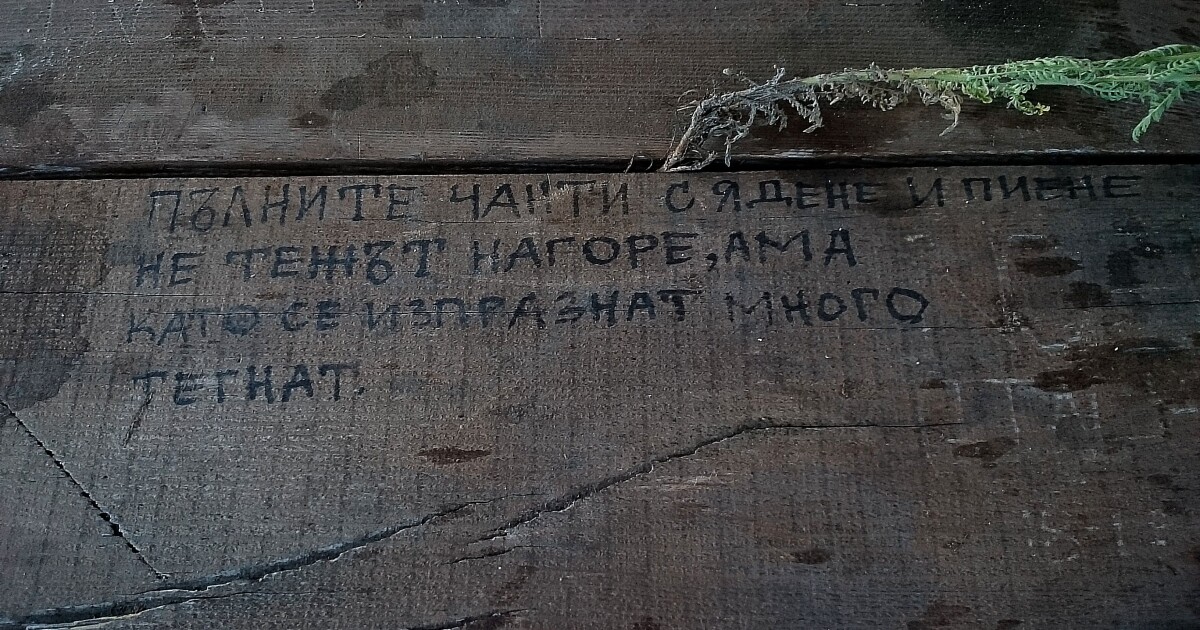 ПЪЛНИТЕ ЧАНТИ С ЯДЕНЕ И ПИЕНЕ
НЕ ТЕЖЪТ НАГОРЕ, АМА
КАТО СЕ ИЗПРАЗНАТ МНОГО
ТЕГНАТ.